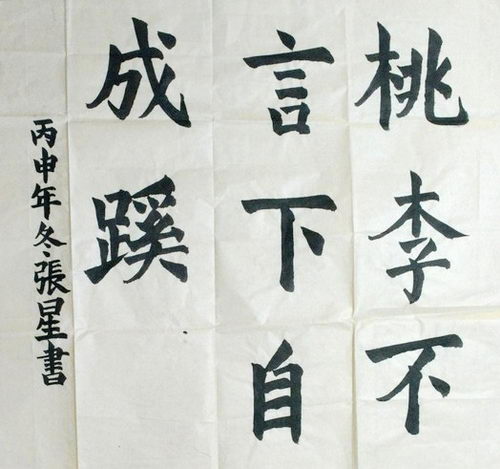 桃李不
言下自
成蹊
丙申年冬張星書